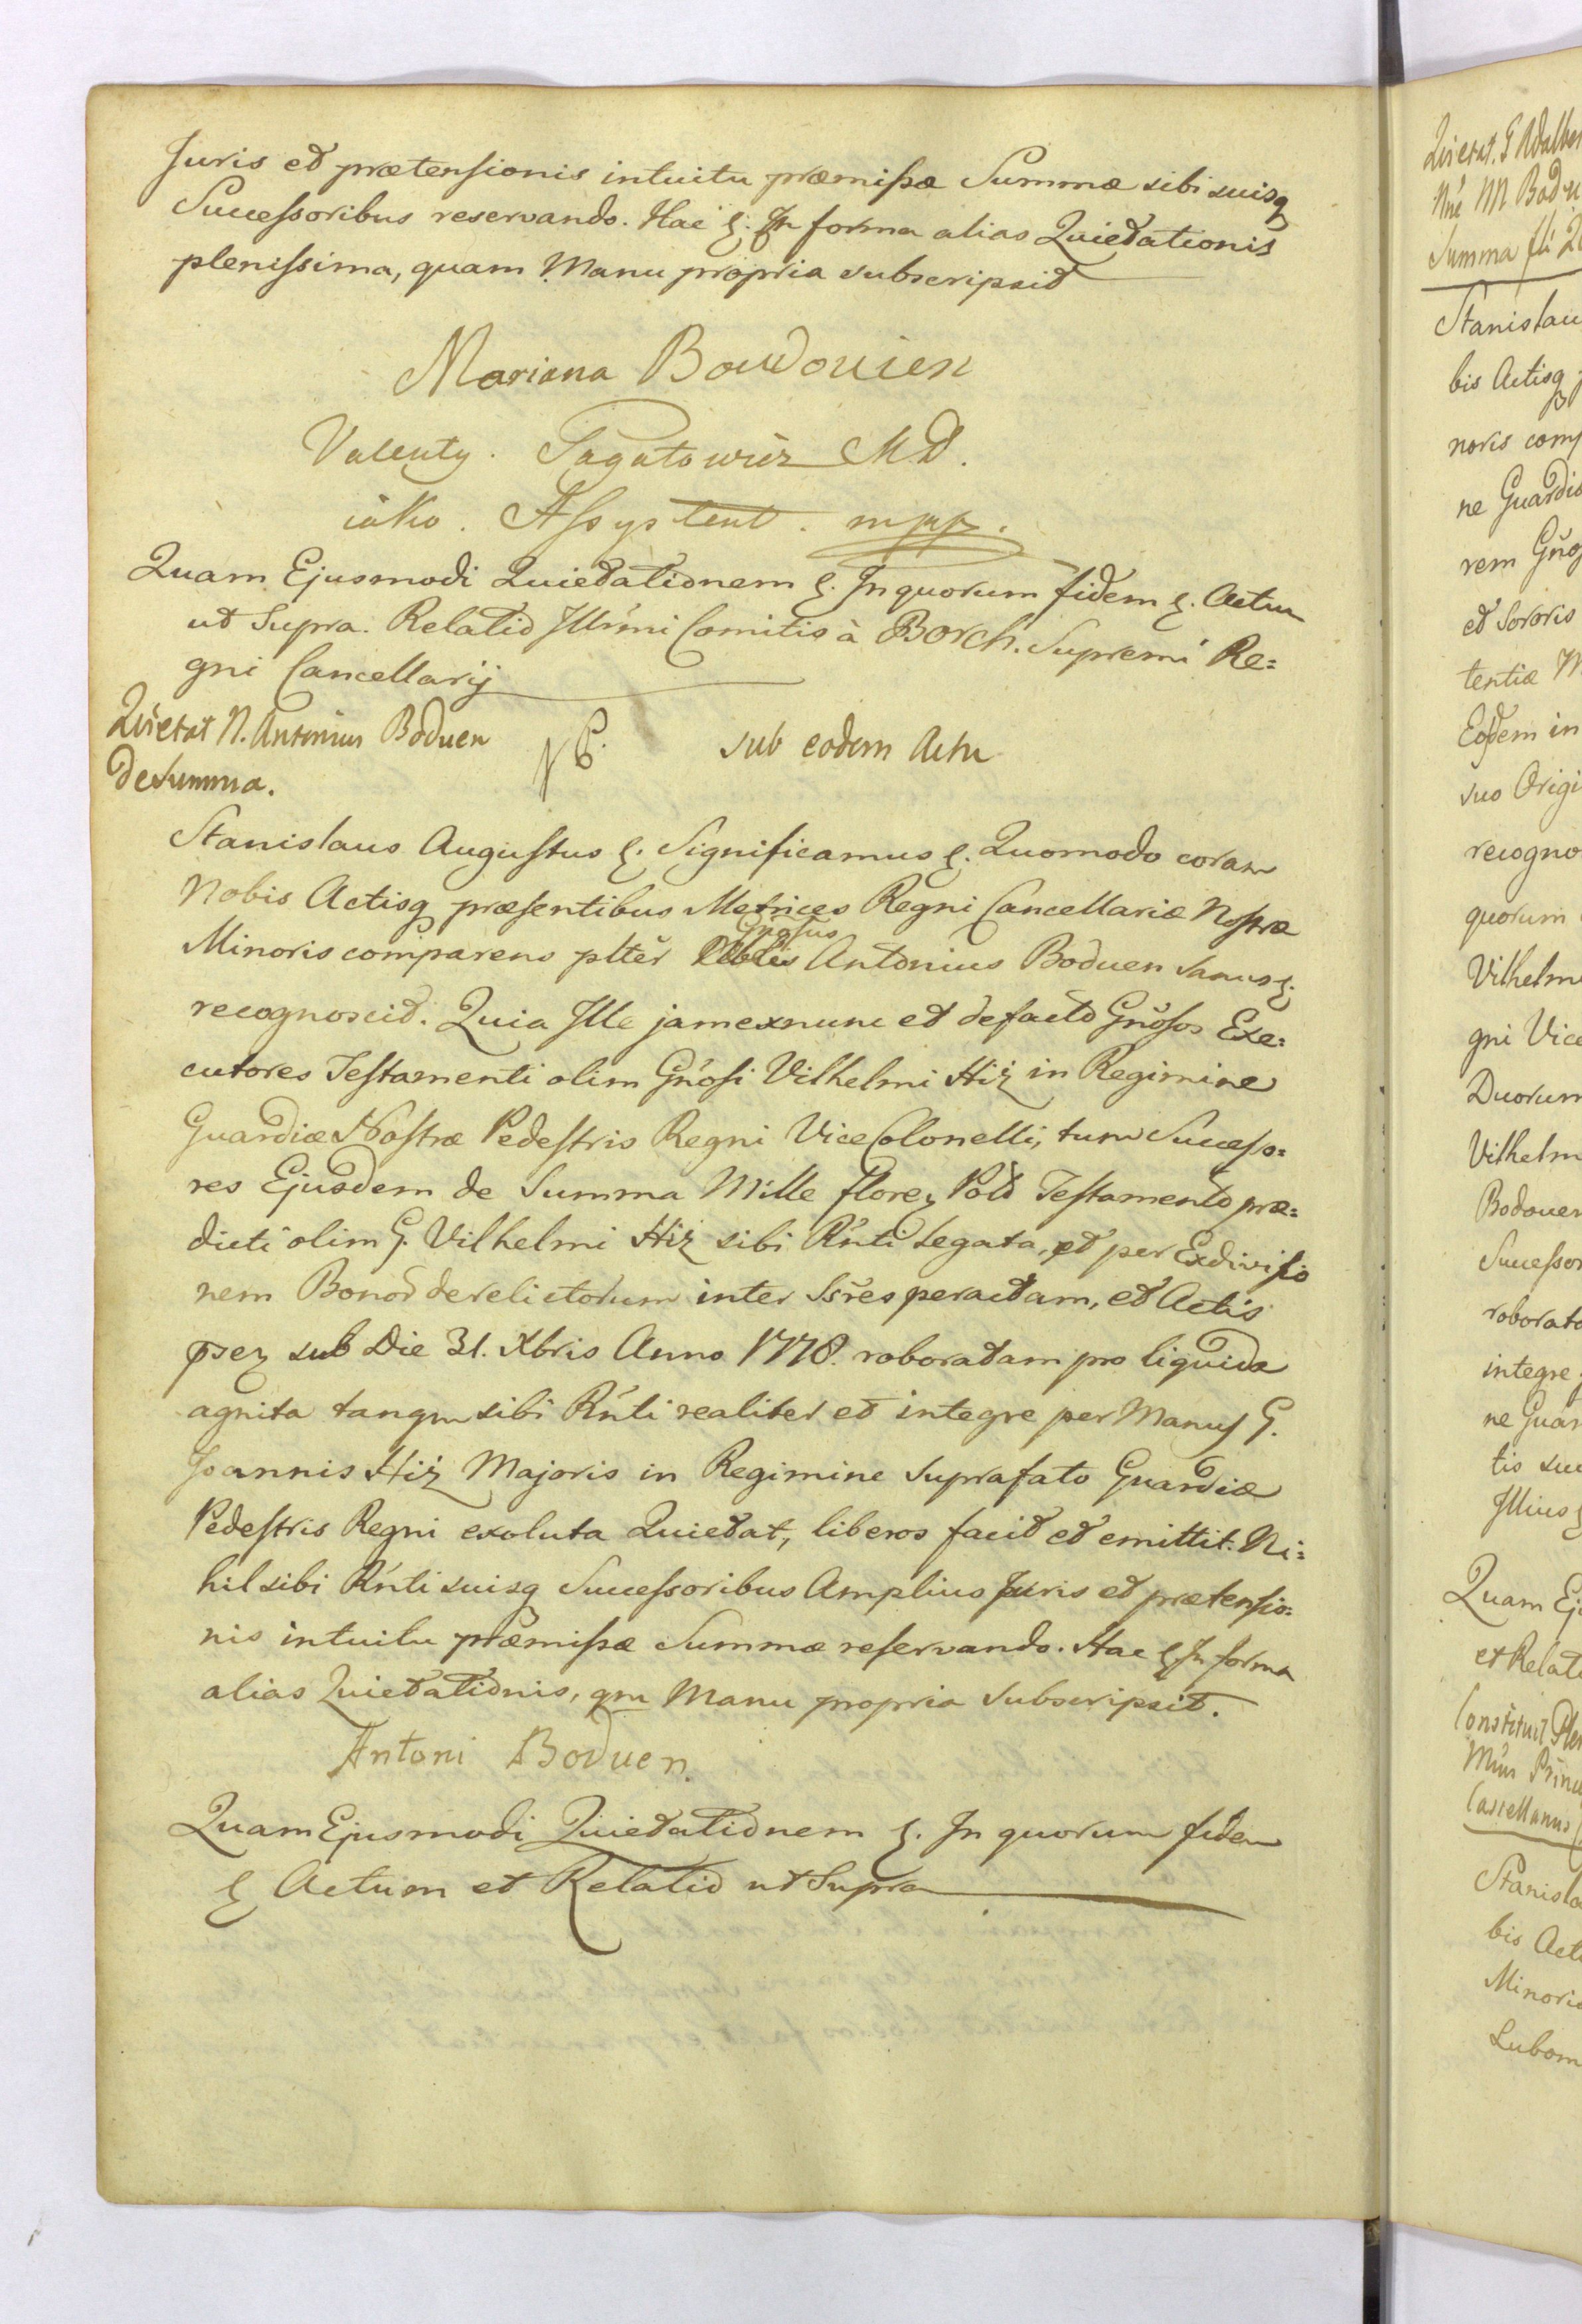 Juris et prætensionis intuitu præmissæ Summæ sibi suisq
Successoribus reservando. Hac &. In forma alias Quietationis
plenissima, quam Manu propria subscripsit
Mariana Boudouien
Valenty. Pagatowicz MD.
iako. Assystent. mpp.
Quam Ejusmodi Quietationem &. In quorum fidem &. Actum
ut Supra. Relatio Illrmi Comitis à Borch. Supremi Re=
gni Cancellarij
Quietat N. Antonius Boduen
de summa.
sub eodem Actu
Stanislaus Augustus &. Significamus &. Quomodo coram
Nobis Actisq præsentibus Metrices Regni Cancellariæ Nostræ
Gnosus
Minoris comparens plter Antonius Boduen sanus &.
recognoscit. Quia Ille jam exnunc et defacto Gnosos Exe=
cutores Testamenti olim Gnosi Vilhelmi Hiż in Regimine
Guardiæ Nostræ Pedestris Regni Vice Colonelli, tum Successo=
res Ejusdem de Summa Mille floren Polo Testamento præ=
dicti olim G. Vilhelmi Hiż sibi Rnti legata, et per Exdivisio
nem Bonor derelictorum inter Ssres peractam, et Actis
psen sub Die 31. Xbris Anno 1778. roboratam pro liquida
agnita tanqm sibi Rnti realiter et integre per Manus G.
Joannis Hiż Majoris in Regimine suprafato Guardiæ
Pedestris Regni exoluta Quietat, liberos facit et emittit. Ni=
hil sibi Rnti suisq Successoribus Amplius Juris et prætensio=
nis intuitu præmissæ Summæ reservando. Hac &. In forma
alias Quietationis, qm Manu propria subscripsit.
Antoni Boduen.
Quam Ejusmodi Quietationem &. In quorum fidem
& Actum et Relatio ut Supra
Quietat. G Adalber
Nne M Bodu
Summa fli 2
Stanislau
bis Actisq
noris comp
ne Guardia
rem Gnos
et Sororis
tentiæ M
Eodem in
suo Origi
recogno
quorum
Vilhelm
gni Vice
Duorum
Vilhelm
Bodouen
Successor
roborata
integre
ne Guar
tis suc
Illius &
Quam Ej
et Relati
Constituit Plen
Mius Princ
Castellanus
Stanisla
bis Acti
Minoris
Lubom